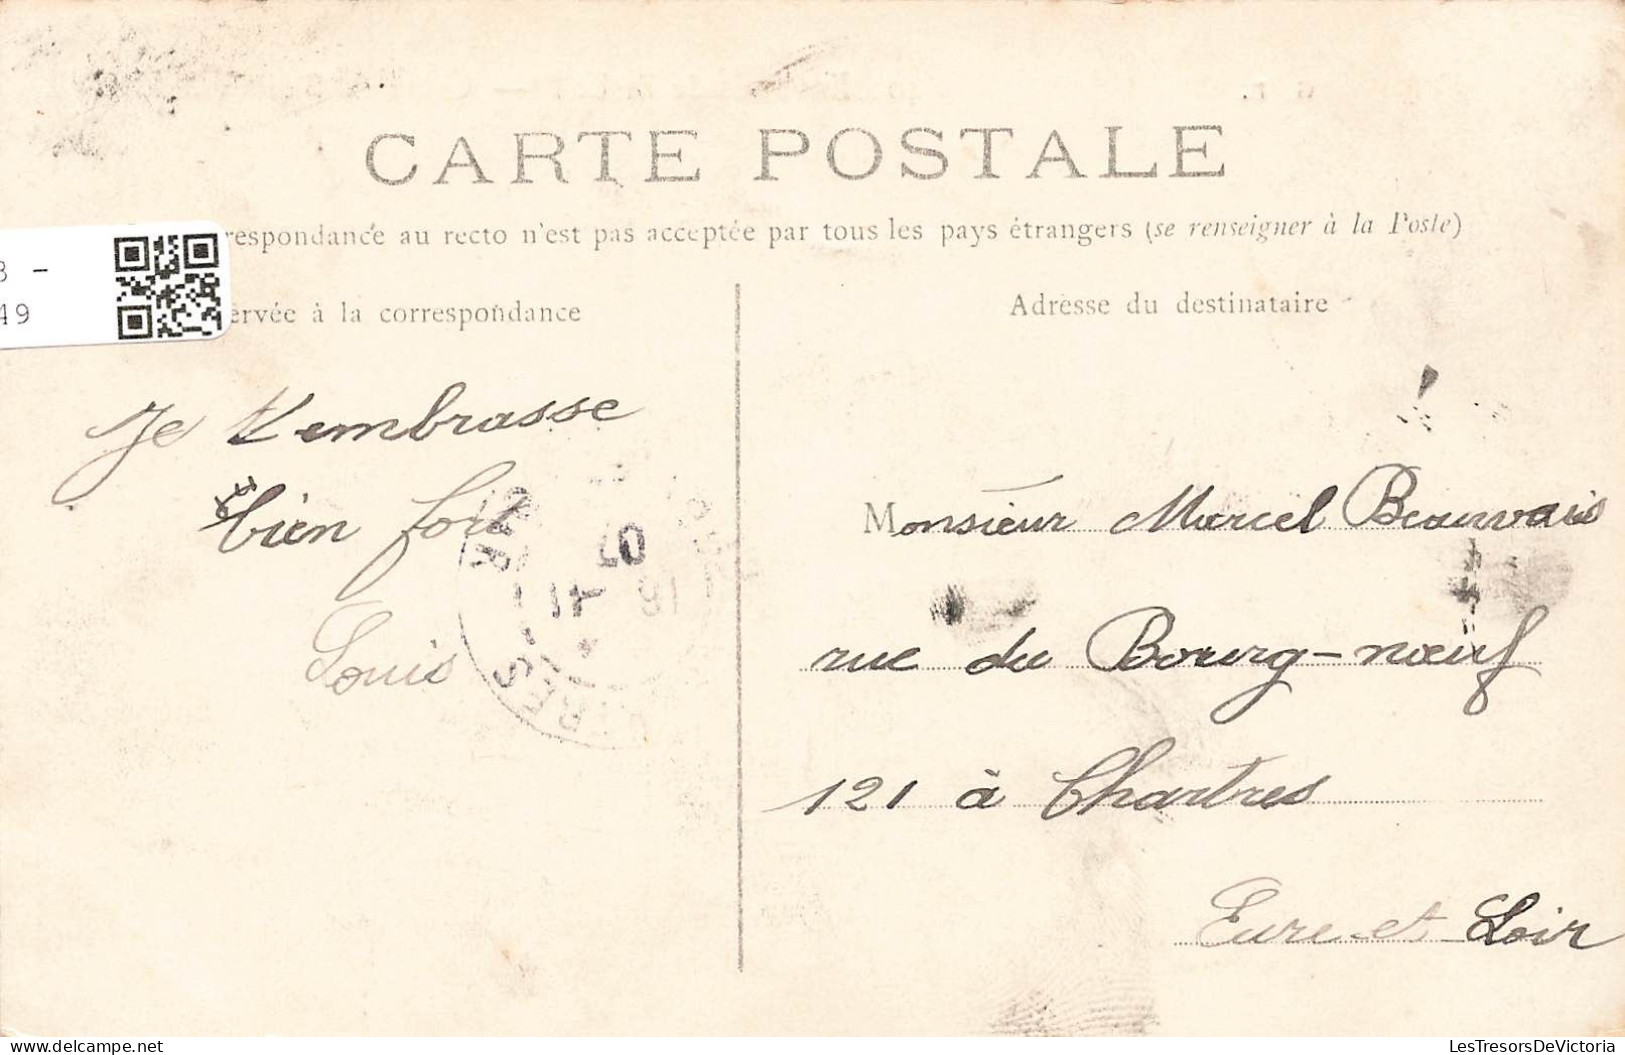 CARTE POSTALE
respondance au recto n'est pas acceptée par tous les pays étrangers (se renseigner à la Poste)
8 -
49
ervée à la correspondance
Adresse du destinataire
Je t'embrasse
bien fort
Louis
07
Monsieur Marcel Beauvais
rue du Bourg-nœuf
121 à Chartres
Eure et Loir
LesTresorsDeVictoria